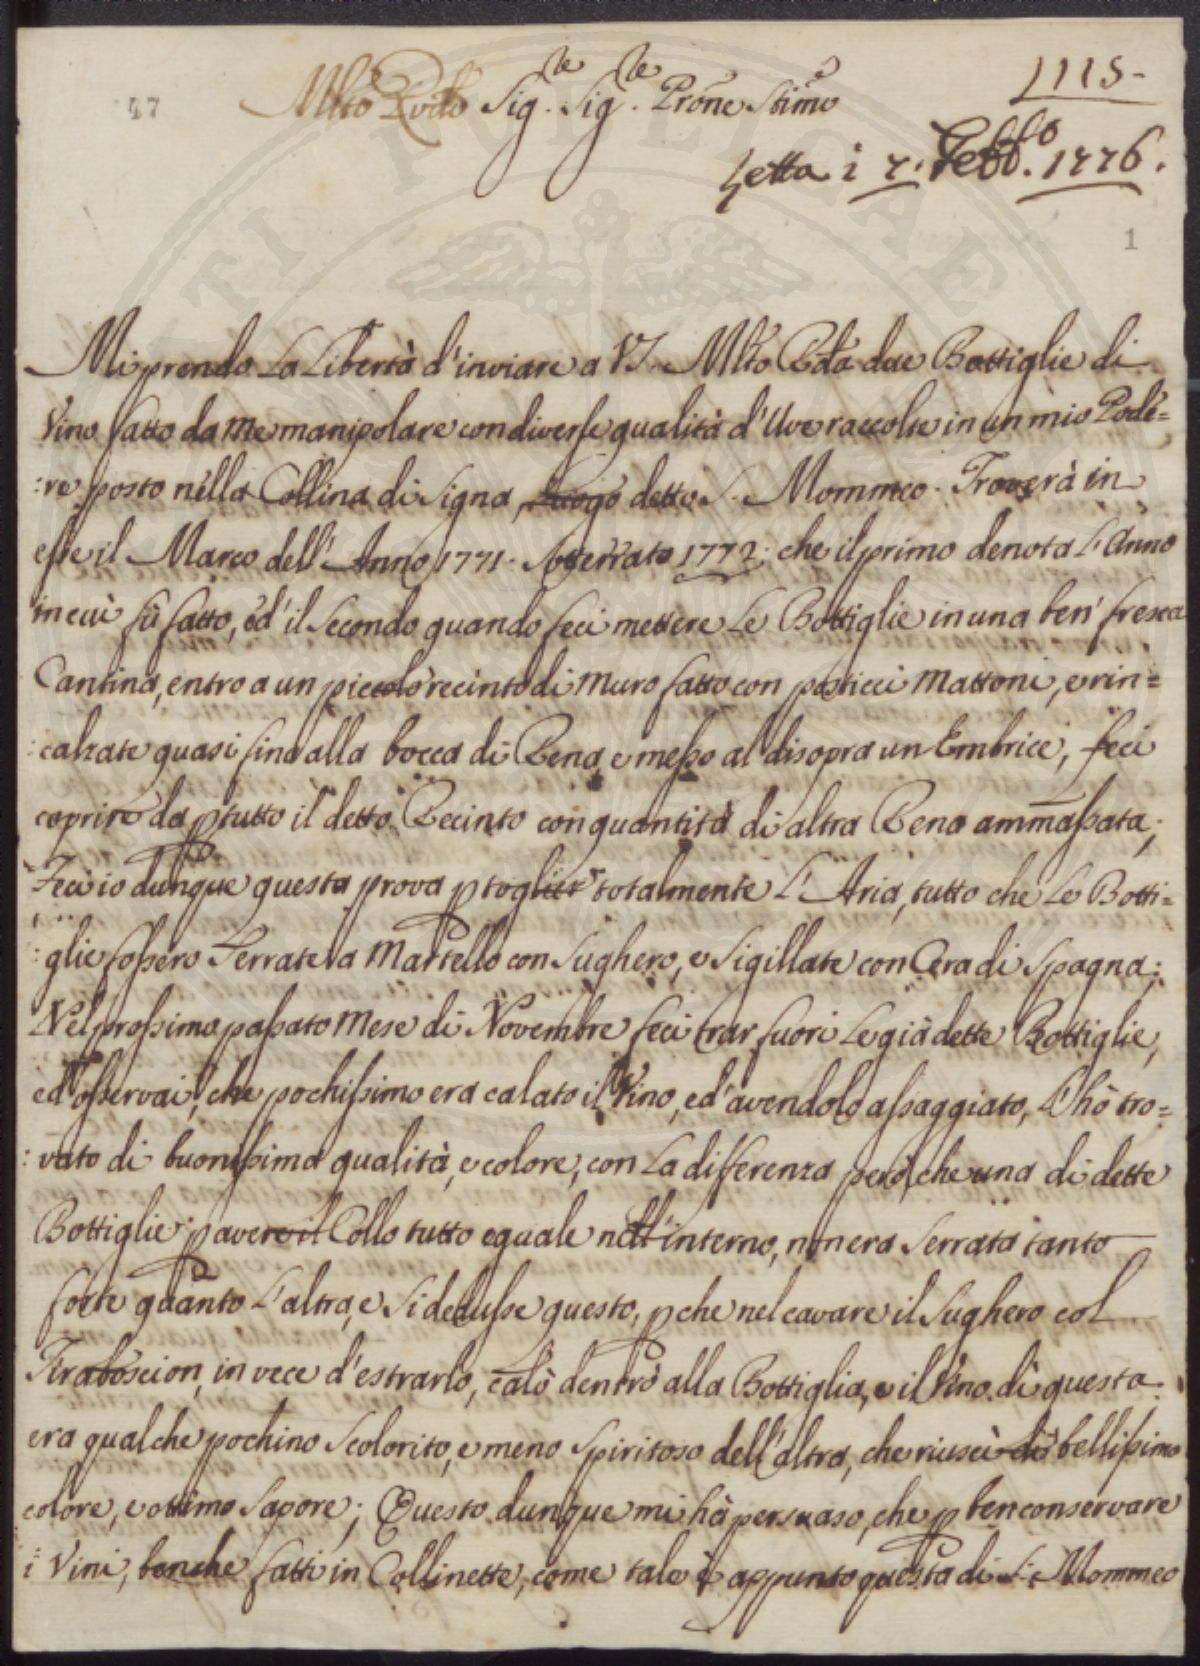 47
1115.
Mlto Rvdo Sig.re Sig.re Prône Stimo
Letta i 7. Febb.o 1776.
1
Mi prendo La Libertà d'inviare a VS. Mlto Rda due Bottiglie di
Vino fatto da me manipolare con diverse qualità d'Uve raccolte in un mio Pode=
:re posto nella Collina di Signa, Luogo detto S. Mommeo. Troverà in
esse il Marco dell'Anno 1771. Soterrato 1772: che il primo denota L'Anno
in cui fù fatto, ed' il Secondo quando feci mettere Le Bottiglie in una ben' fresca
Cantina, entro a un piccolo recinto di Muro fatto con posticci Mattoni, e rin=
:calzate quasi fino alla bocca di Rena, e messo al disopra un Embrice, feci
coprire da p tutto il detto Recinto con quantità di altra Rena ammassata;
Feci io dunque questa prova p togliere totalmente L'Aria, tutto che Le Botti=
:glie fossero Serrate a Martello con Sughero, e Sigillate con Cera di Spagna;
Nel prossimo passato Mese di Novembre feci trar fuori Le già dette Bottiglie,
ed' osservai, che pochissimo era calato il Vino, ed' avendolo assaggiato, L'hò tro=
:vato di buonissima qualità, e colore, con La differenza però, che una di dette
Bottiglie p avere il Collo tutto eguale nell'interno, non era Serrata tanto
forte quanto L'altra, e Si dedusse questo, pche nel cavare il Sughero col
Tiraboscion, in vece d'estrarlo, calò dentro alla Bottiglia, e il Vino di questa
era qualche pochino Scolorito, e meno Spiritoso dell'altra, che riuscì di bellissimo
colore, e ottimo Sapore; Questo dunque mi hà persuaso, che p ben conservare
i Vini, benche fatti in Collinette, come tale è appunto questa di S. Mommeo